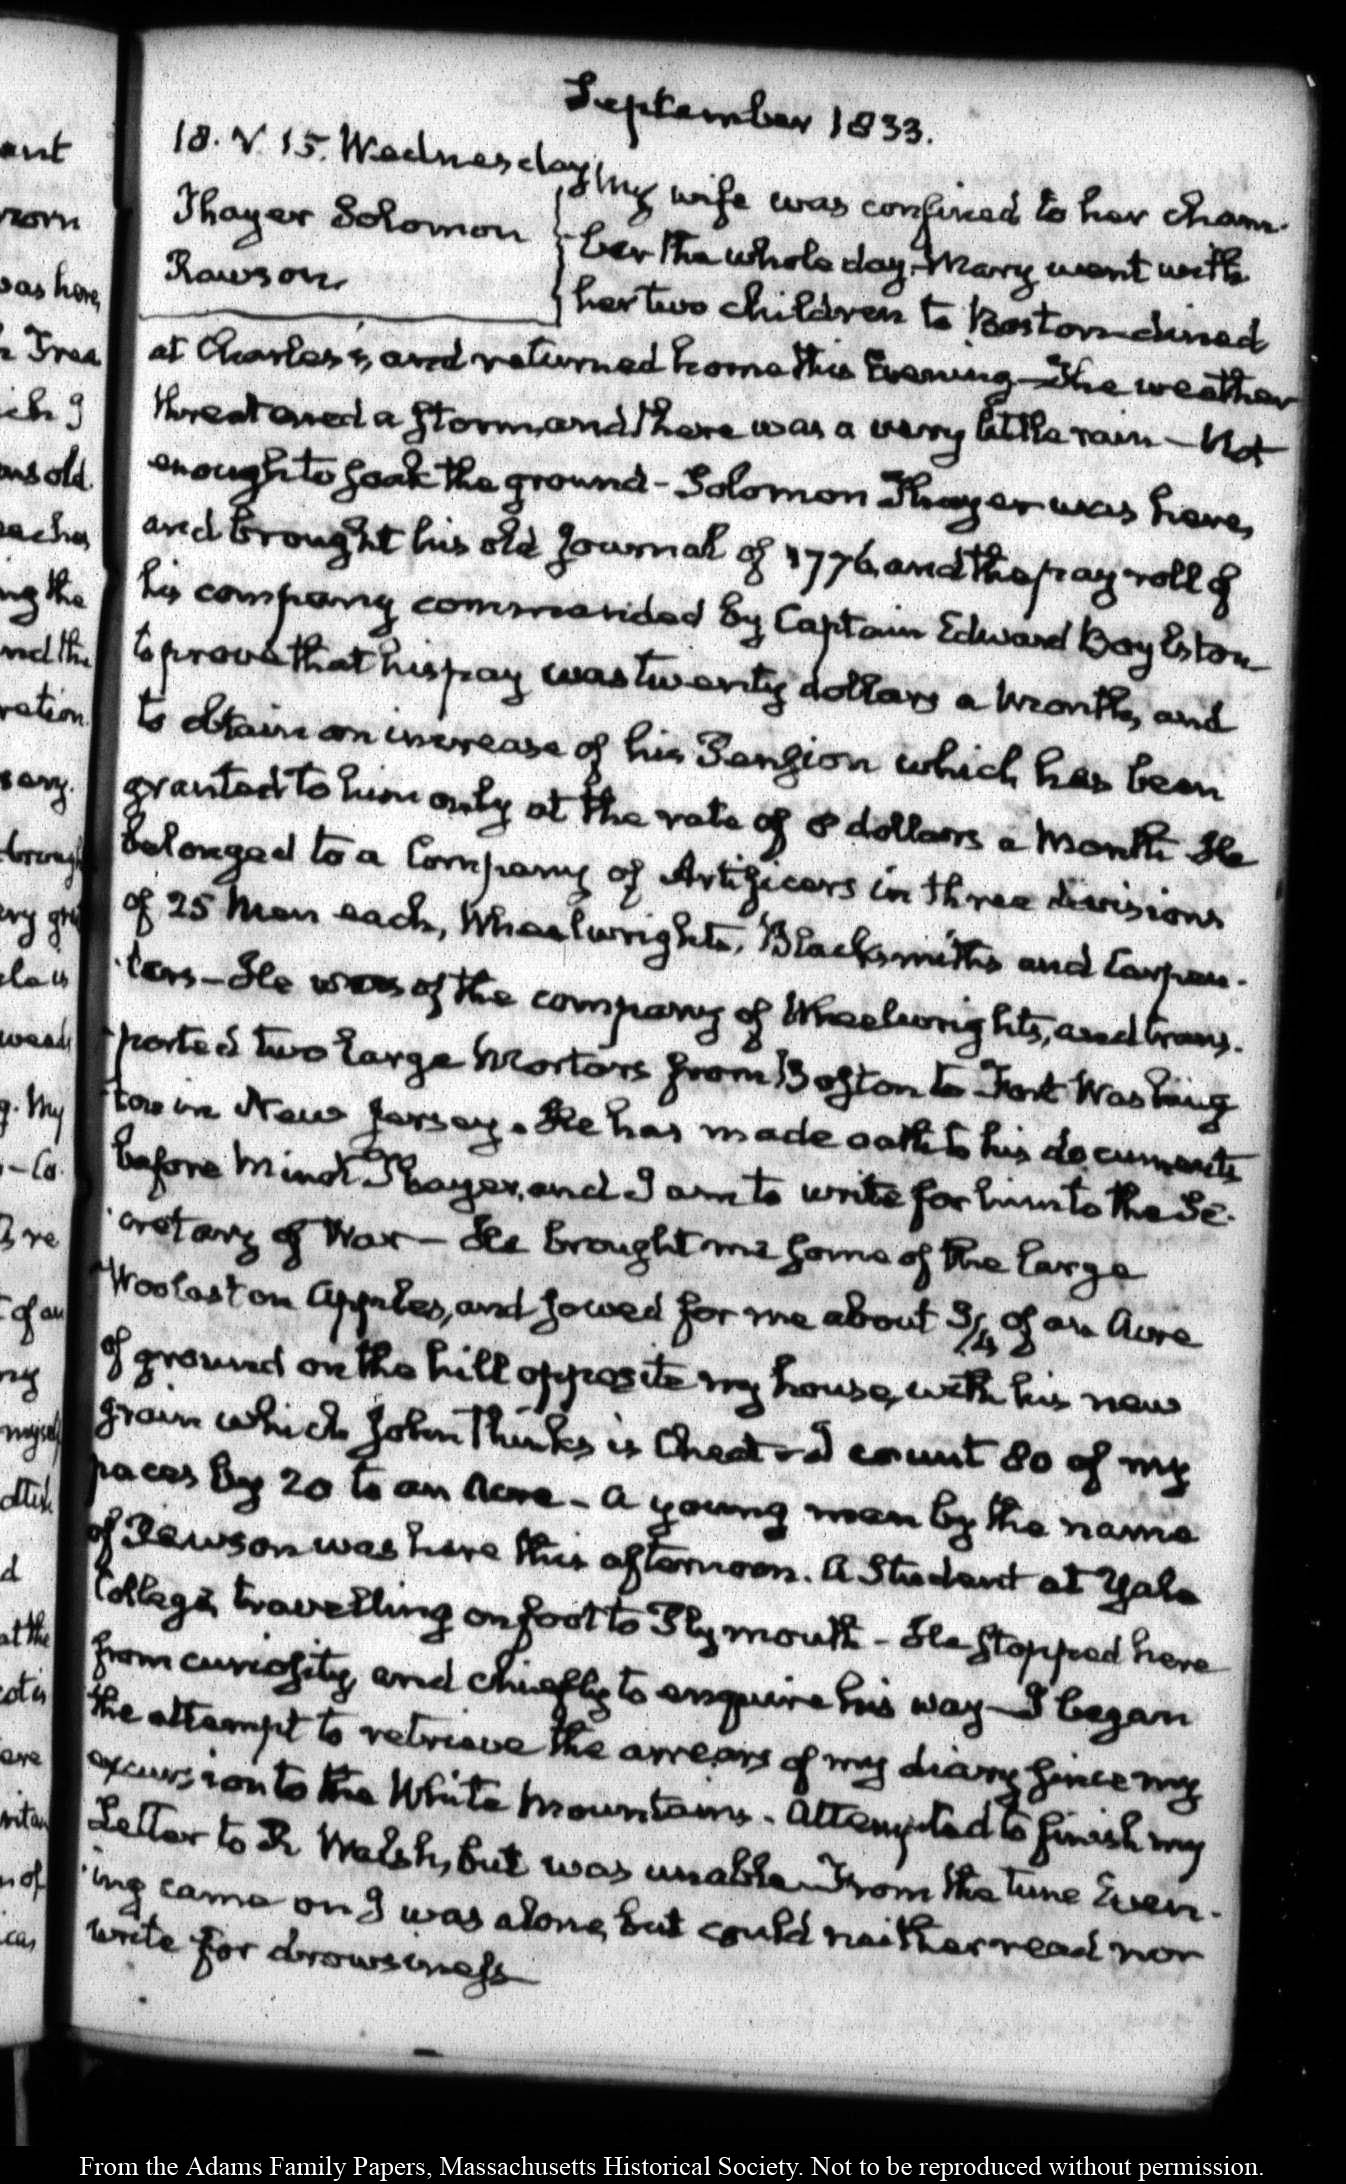 September 1833.
18. V. 15. Wednesday.
Thayer Solomon
Rawson.
My wife was confined to her cham-
ber the whole day. Mary went with
her two children to Boston dined
at Charles's, and returned home this Evening—The weather
threatened a storm, and there was a very little rain—Not
enough to soak the ground—Solomon Thayer was here,
and brought his old Journal of 1776, and the pay roll of
his company commanded by Captain Edward Boylston
to prove that his pay was twenty dollars a month, and
to obtain an increase of his Pension which has been
granted to him only at the rate of 8 dollars a Month. He
belonged to a Company of Artificers in three divisions
of 25 Men each, Wheelwrights, Blacksmiths and Carpen-
ters—He was of the company of Wheelwrights, and trans-
ported two large Mortars from Boston to Fort Washing
ton in New Jersey. He has made oath to his documents
before Minot Thayer, and I am to write for him to the Se-
cretary of War—He brought me some of the large
Woolaston Apples, and sowed for me about 3/4 of an Acre
of ground on the hill opposite my house, with his new
grain which John thinks is Cheat—I count 80 of my
paces by 20 to an Acre—A young man by the name
of Rawson was here this afternoon. A Student at Yale
College, travelling on foot to Plymouth—He stopped here
from curiosity, and chiefly to enquire his way—I began
the attempt to retrieve the arrears of my diary since my
excursion to the White Mountains. Attempted to finish my
Letter to Dr Welsh, but was unable—From the time Even-
ing came on I was alone, but could neither read nor
write for drowsiness
ant
was here,
Tree
ich I
old
ing the
and the
ration
ary.
brought
g. My
Co.
re
of an
my
myself
d
at the
are
of
From the Adams Family Papers, Massachusetts Historical Society. Not to be reproduced without permission.